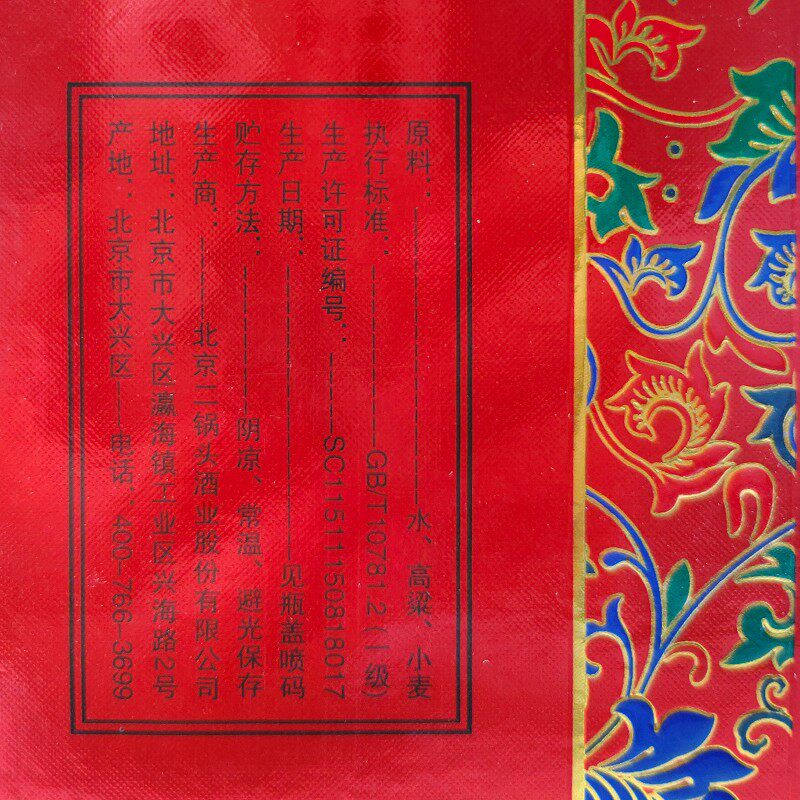 原料：水、高粱、小麦
执行标准：GB/T10781.2（一级）
生产许可证编号：SC11511150818017
生产日期：见瓶盖喷码
贮存方法：阴凉、常温、避光保存
生产商：北京二锅头酒业股份有限公司
地址：北京市大兴区瀛海镇工业区兴海路2号
产地：北京市大兴区——电话：400-766-3699